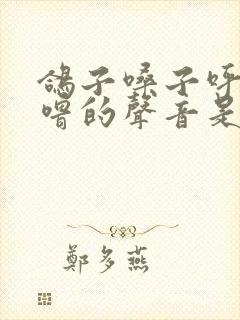 鴿子嗓子呼
嚕的聲音是
鄭多燕